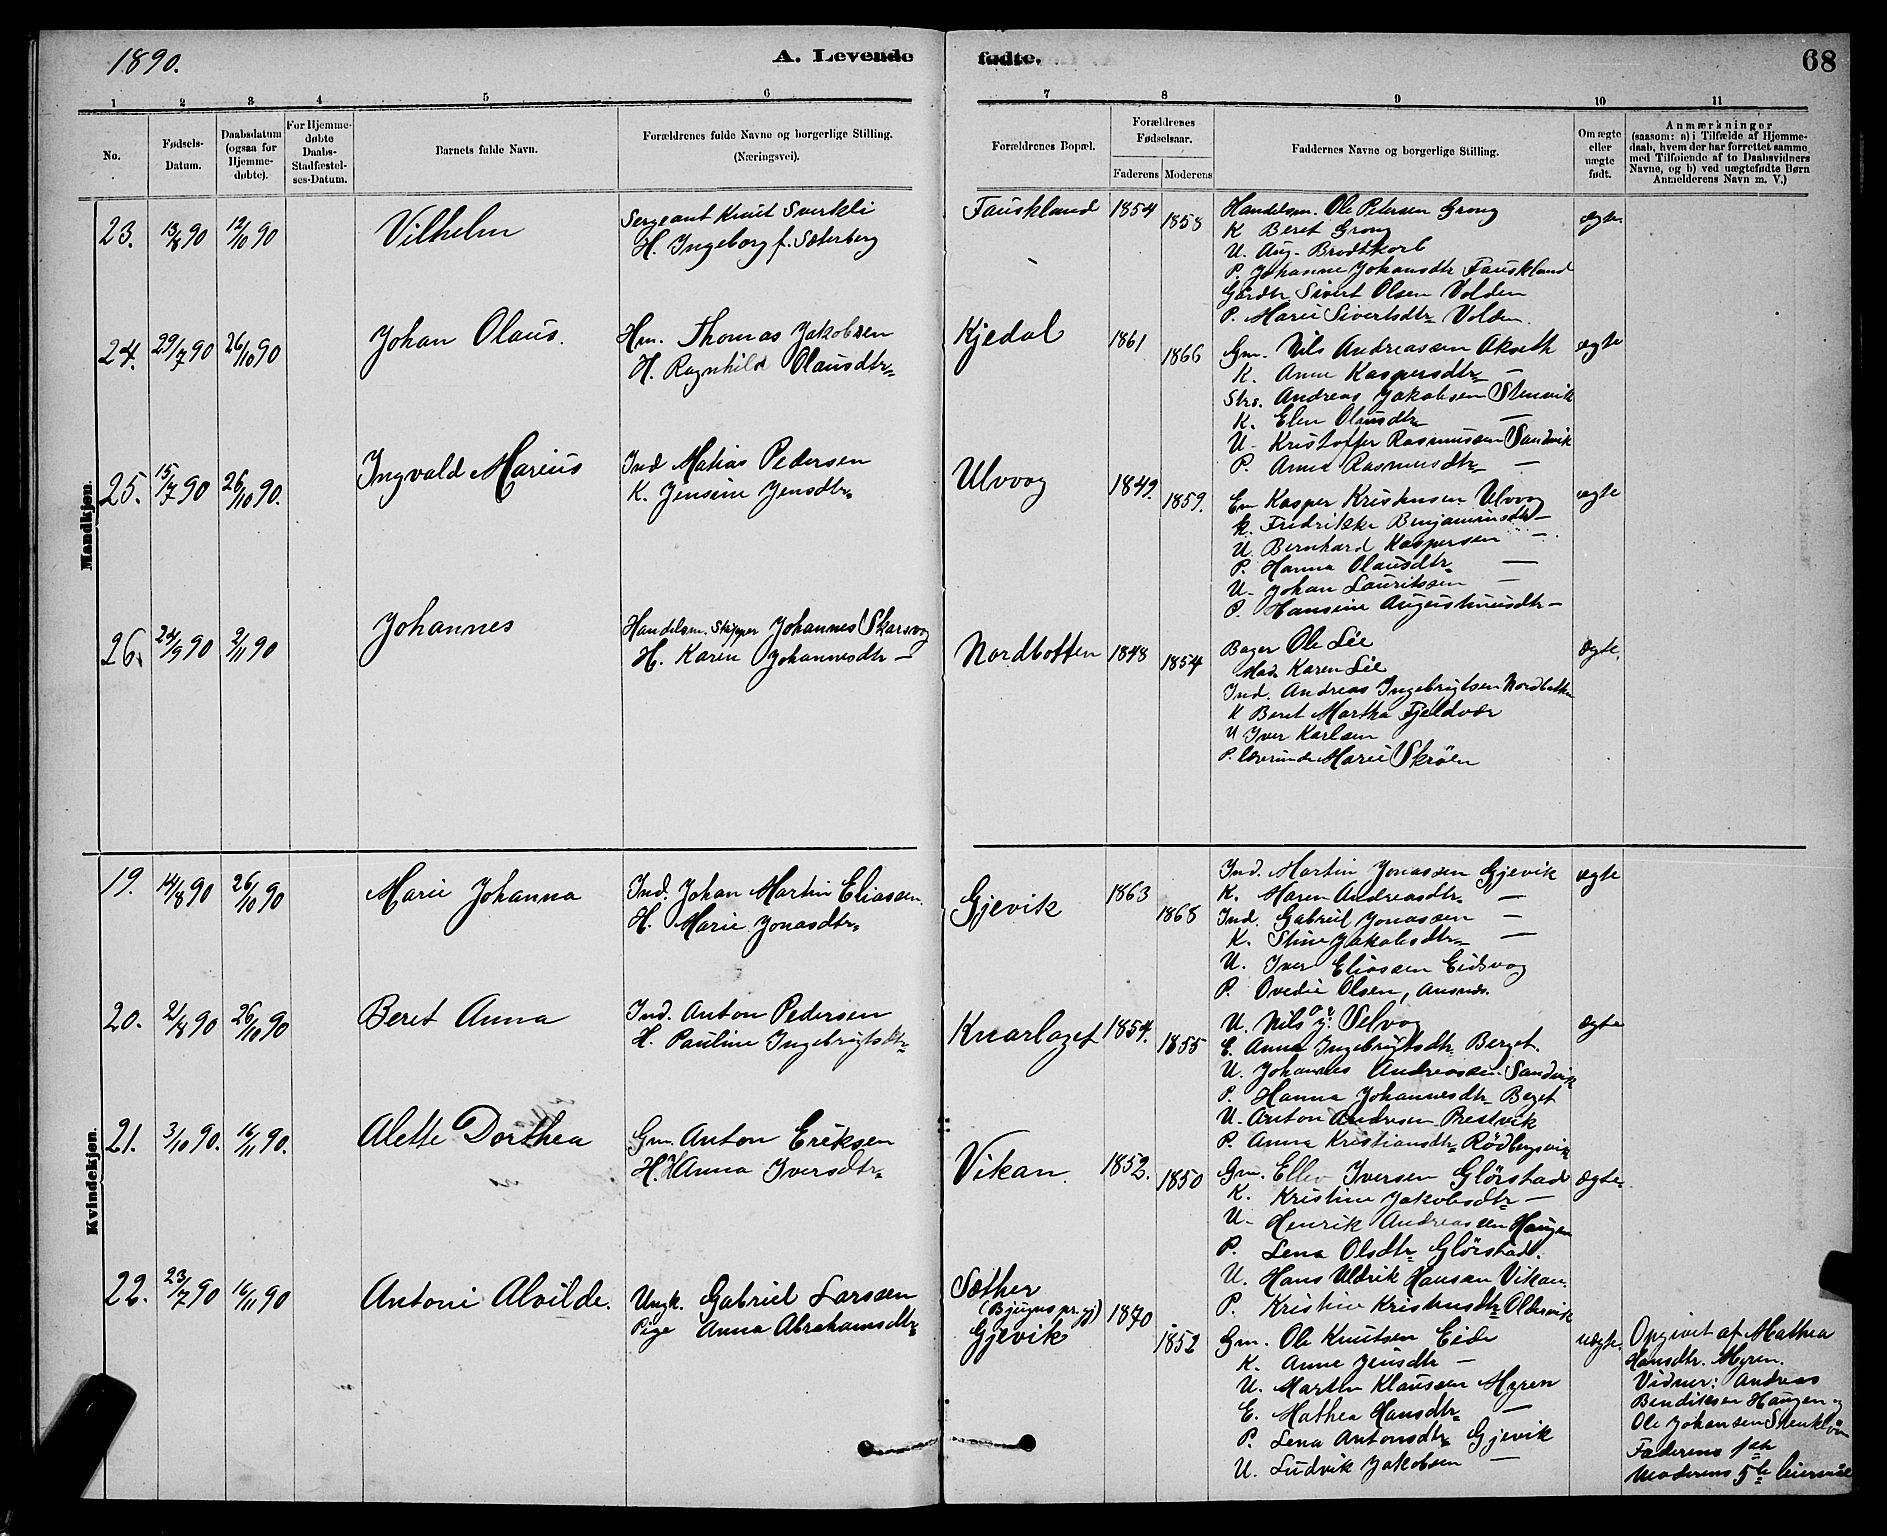 1890.
A. Levende
fødte.
68
1 2 3 4 5 6 7 8 9 10 11
No.
Fødsels-Datum.
Daabsdatum (ogsaa for Hjemme-døbte).
For Hjemme-døbte Daabs-Stadfæstel-ses-Datum.
Barnets fulde Navn.
Forældrenes fulde Navne og borgerlige Stilling.
(Næringsvei).
Forældrenes Bopæl.
Forældrenes Fødselsaar.
Faderens Moderens
Faddernes Navne og borgerlige Stilling.
Om ægte eller uægte født.
Anmærkninger
(saasom: a) i Tilfælde af Hjemme-
daab, hvem der har forrettet samme
med Tilføiende af to Daabsvidners
Navne, og b) ved uægtefødte Børn
Anmelderens Navn m. V.)
Mandkjøn.
23. 13/8 90 12/10 90 Vilhelm
Sergeant Knut Sverkli
H. Ingeborg f. Sæterberg
Fauskland 1854 1858
Handelsm. Ole Petersen Grong
K Beret Grong
U. Aug. Brodtkorb
P. Johanne Johansdtr Fauskland
Gårdbr Sivert Olsen Volden
P. Marie Sivertsdtr Volden.
ægte
24. 29/7 90 26/10 90 Johan Olaus.
Hm. Thomas Jakobsen
H. Ragnhild Olausdtr
Kjedal 1861 1866
Gm. Nils Andreassen Akseth
K. Anne Kaspersdtr —
Strs. Andreas Jakobsen Stenvik
K. Elen Olausdtr —
U. Kristoffer Rasmussen Sandvik
P. Anna Rasmusdtr —
ægte
25. 15/7 90 26/10 90. Ingvald Marius
Ind Matias Pedersen
K. Jensine Jensdtr
Ulvvog 1849. 1859.
Em Kasper Kristensen Ulvvog
K. Fredrikke Benjaminsdtr —
U. Bernhard Kaspersen —
P. Hanna Olausdtr —
U. Johan Lauritssen —
P. Hansine Augustinusdtr —
ægte
26. 24/9 90 2/11 90 Johannes
Handelsm. Skipper Johannes Skarsvog
H. Karen Johannesdtr —
Nordbotten 1848 1854
Bager Ole Lie
Mad. Karen Lie
Ind. Andreas Ingebrigtsen Nordbotten
K Beret Martha Fjeldvær
U Iver Karlsen
P. Lærerinde Marie Skrøen
Ægte.
Kvindekjøn.
19. 14/8 90 26/10 90 Marie Johanna
Ind. Johan Martin Eliassen.
H. Marie Jonasdtr
Gjevik 1863 1868
Ind. Martin Jonassen Gjevik
K. Maren Andreasdtr —
Ind. Gabriel Jonassen —
K. Stine Jakobsdtr —
U. Iver Eliassen Eidsvog
P. Ovedie Olsen, Ansnes.
ægte
20. 2/8 90 26/10 90 Beret Anna
Ind. Anton Pedersen
H. Pauline Ingebrigtsdtr
Knarlaget 1854. 1855
U. Nils Selvog
E. Anna Ingebrigtsdtr Berget.
U. Johannes Andreassen Sandvik
P. Hanna Johannesdtr Berget
U. Anton Andresen Prestvik
P. Anna Kristiansdtr Rødbergsvik
Ægte
21. 3/10 90. 16/11 90. Alette Dorthea
Gm. Anton Eriksen
H. Anna Iversdtr
Vikan. 1852. 1850
Gm. Ellev Iversen Glørstad
K. Kristine Jakobsdtr —
U. Henrik Andreassen Haugen
P. Lena Olsdtr Glørstad.
U. Hans Uldrik Hansan Vikan.
P. Kristine Kristensdtr Oldervik
Ægte
22. 23/7 90 16/11 90 Antoni Alvilde.
Ungk. Gabriel Larssen
Pige Anna Abrahamsdtr
Sæther
(Bjugns pr. gj)
Gjevik
1870 1852
Gm. Ole Knutsen Eide
K. Anne Jensdtr —
U. Martin Klaussen Myren
E. Mathea Hansdtr —
P. Lena Antonsdtr Gjevik
U. Ludvik Jakobsen —
uægte.
Opgivet af Mathea
Hansdtr. Myren.
Vidner: Andreas
Bendiksen Haugen og
Ole Johansen Stenkløv
Faderens 1ste
Moderens 5te leiermål